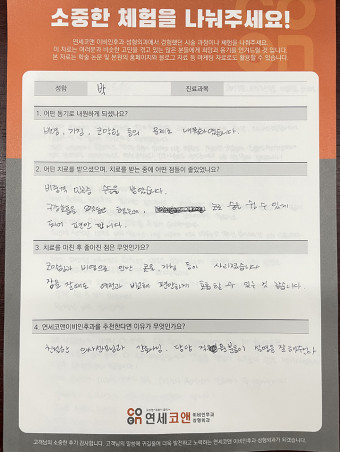 소중한 체험을 나눠주세요!
연세코앤이비인후과 성형외과에서 경험했던 시술 과정이나 체험을 나눠주세요.
이 자료는 여러분과 비슷한 고민을 겪고 있는 많은 분들에게 희망과 용기를 안겨드릴 것 입니다.
본 자료는 학술 논문 및 본원의 홈페이지와 블로그 자료 등 마케팅 자료로도 활용될 수 있습니다.
성함 박 진료과목
1. 어떤 동기로 내원하게 되셨나요?
비염, 기침, 코막힘 등의 문제로 내원하였습니다.
2. 어떤 치료를 받으셨으며, 치료를 받는 중에 어떤 점들이 좋았었나요?
비중격 수술을 받았습니다.
코로 숨을 쉴 수 있게
되어 편안 합니다.
3. 치료를 마친 후 좋아진 점은 무엇인가요?
코막힘과 비염으로 인한 기침 등이 사라졌습니다
잠을 잘때도 편안하게 호흡 할 수 있는 것 같습니다.
4. 연세코앤이비인후과를 추천한다면 이유가 무엇인가요?
친절한 의사선생님과 간호사님. 담당 직원분들이 설명을 잘 해주셔서
CO&N 연세코앤 이비인후과 성형외과
고객님의 소중한 후기 감사합니다. 고객님의 말씀에 귀기울여 더욱 발전하고 노력하는 연세코앤 이비인후과 성형외과가 되겠습니다.